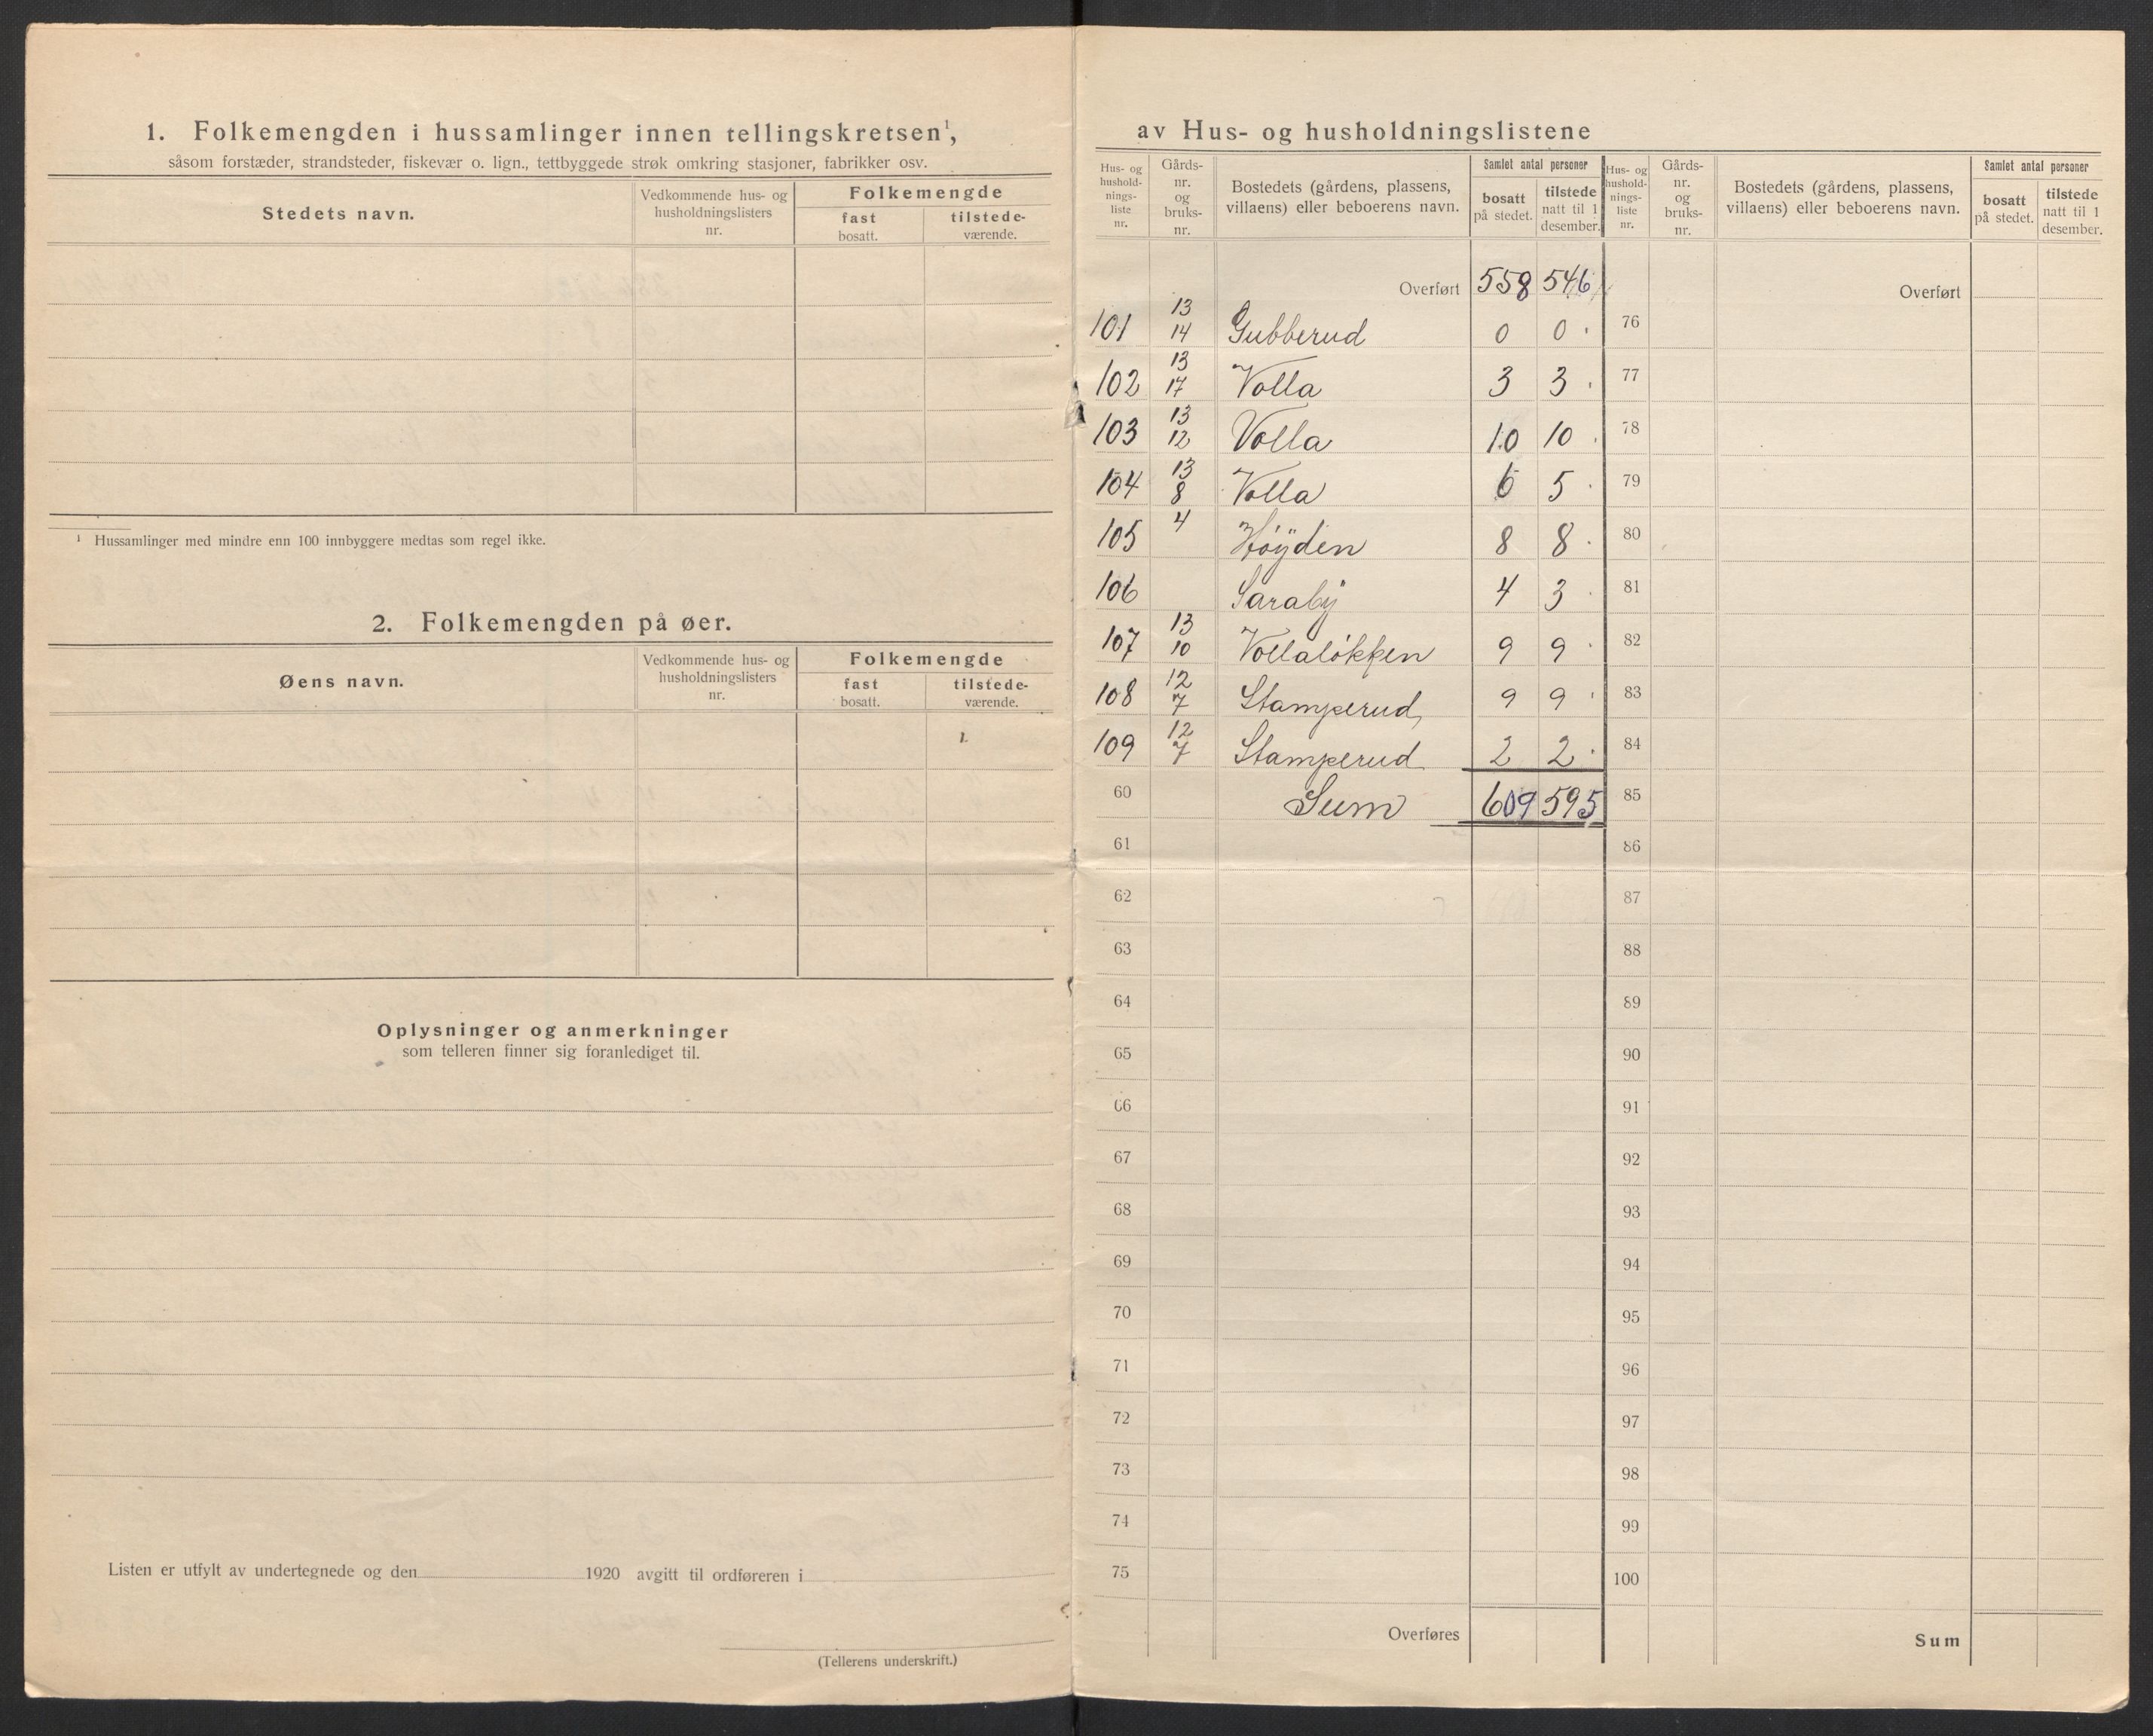 1. Folkemengden i hussamlinger innen tellingskretsen¹,
såsom forstæder, strandsteder, fiskevær o. lign., tettbyggede strøk omkring stasjoner, fabrikker osv.
Stedets navn.
Vedkommende hus- og
husholdningslisters
nr.
Folkemengde
fast
bosatt.
tilstede-
værende.
¹ Hussamlinger med mindre enn 100 innbyggere medtas som regel ikke.
2. Folkemengden på øer.
Øens navn.
Vedkommende hus- og
husholdningslisters
nr.
Folkemengde
fast
bosatt.
tilstede-
værende.
Oplysninger og anmerkninger
som telleren finner sig foranlediget til.
Listen er utfylt av undertegnede og den 1920 avgitt til ordføreren i
(Tellerens underskrift.)
av Hus- og husholdningslistene
Hus- og
hushold-
nings-
liste
nr.
Gårds-
nr.
og
bruks-
nr.
Bostedets (gårdens, plassens,
villaens) eller beboerens navn.
Samlet antal personer
bosatt
på stedet.
tilstede
natt til 1
desember.
Overført 558 546
101 13 14 Gubberud 0 0
102 13 17 Volla 3 3
103 13 12 Volla 10 10
104 13 8 Volla 6 5
105 4 Høyden 8 8
106 Saraby 4 3
107 13 10 Vollaløkken 9 9
108 12 7 Stamperud 9 9
109 12 7 Stamperud 2 2
60 Sum 609 595
61
62
63
64
65
66
67
68
69
70
71
72
73
74
75
Overføres
Hus- og
hushold-
nings-
liste
nr.
Gårds-
nr.
og
bruks-
nr.
Bostedets (gårdens, plassens,
villaens) eller beboerens navn.
Samlet antal personer
bosatt
på stedet.
tilstede
natt til 1
desember.
Overført
76
77
78
79
80
81
82
83
84
85
86
87
88
89
90
91
92
93
94
95
96
97
98
99
100
Sum